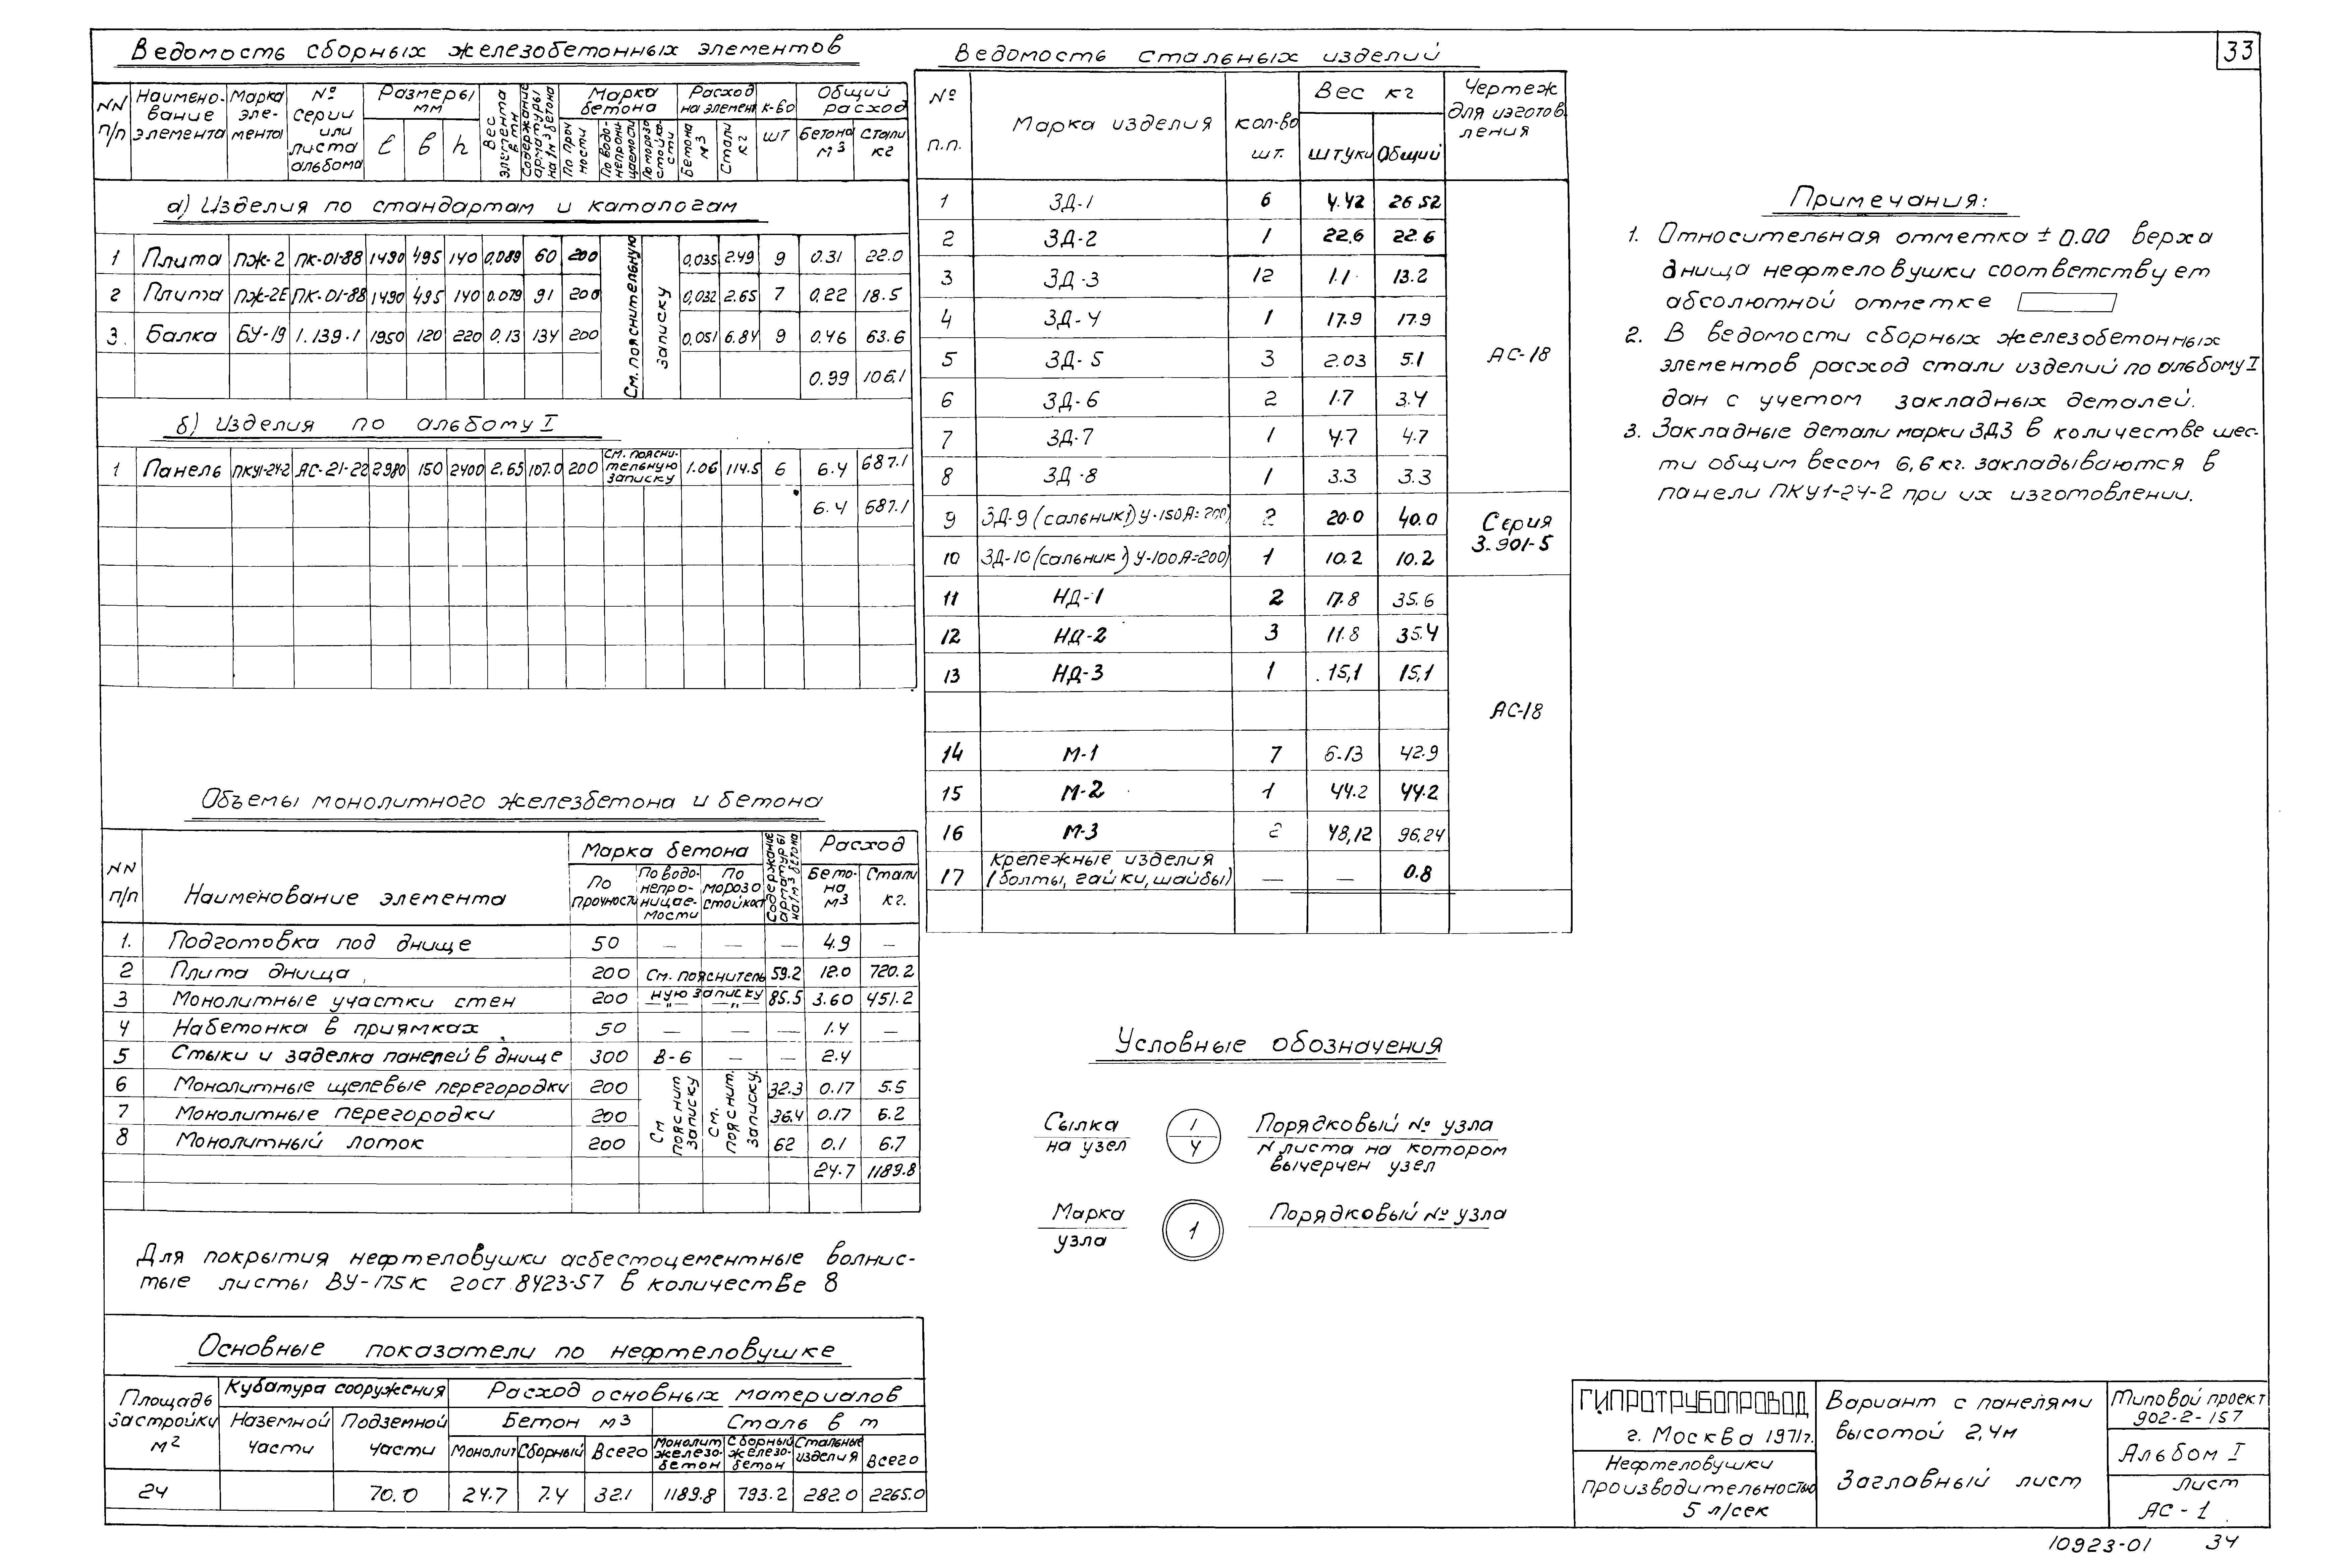 33
Ведомость сборных железобетонных элементов
NN п/п | Наименование элемента | Марка элемента | № серии или листа альбома | Размеры мм: ℓ | в | h | Вес элемента в тн | Содержание арматуры на 1м3 бетона | Марка бетона: По прочности | По водонепроницаемости | По морозостойкости | Расход на элемент: Бетона м3 | Стали кг | к-во шт | Общий расход: Бетона м3 | Стали кг
а) Изделия по стандартам и каталогам
1 | Плита | ПЖ-2 | ПК-01-88 | 1490 | 495 | 140 | 0,089 | 60 | 200 | См. пояснительную записку | 0,035 | 2.49 | 9 | 0.31 | 22.0
2 | Плита | ПЖ-2Е | ПК-01-88 | 1490 | 495 | 140 | 0.079 | 91 | 200 | 0,032 | 2.65 | 7 | 0,22 | 18.5
3. | Балка | БУ-19 | 1.139-1 | 1950 | 120 | 220 | 0,13 | 134 | 200 | 0,051 | 6.84 | 9 | 0.46 | 63.6
0.99 | 106.1
б) Изделия по альбому I
1 | Панель | ПКУ1-24-2 | АС-21-22 | 2980 | 150 | 2400 | 2.65 | 107.0 | 200 | См. поясни-тельную записку | 1.06 | 114.5 | 6 | 6.4 | 687.1
6.4 | 687.1
Объемы монолитного железбетона и бетона
NN п/п | Наименование элемента | Марка бетона: По прочности | По водо-непро-ницае-мости | По морозо стойкост | Содержание арматуры на 1м3 бетона | Расход: Бето-на м3 | Стали кг.
1. | Подготовка под днище | 50 | — | — | — | 4.9 | —
2 | Плита днища | 200 | См. пояснитель | 59.2 | 12.0 | 720.2
3 | Монолитные участки стен | 200 | ную записку | 85.5 | 3.60 | 451.2
4 | Набетонка в приямках | 50 | — | — | — | 1.4 | —
5 | Стыки и заделка панелей в днище | 300 | В-6 | — | — | 2.4
6 | Монолитные щелевые перегородки | 200 | См пояснит записку | См. пояснит. записку. | 32.3 | 0.17 | 5.5
7 | Монолитные перегородки | 200 | 36.4 | 0.17 | 6.2
8 | Монолитный лоток | 200 | 62 | 0.1 | 6.7
24.7 | 1189.8
Для покрытия нефтеловушки асбестоцементные волнис-
тые листы ВУ-175К гост 8423-57 в количестве 8
Основные показатели по нефтеловушке
Площадь застройки м2 | Кубатура сооружения: Наземной части | Подземной части | Расход основных материалов: Бетон м3: Монолит | Сборный | Всего | Сталь в т: Монолит железо-бетон | Сборный железо-бетон | Стальные изделия | Всего
24 | 70.0 | 24.7 | 7.4 | 32.1 | 1189.8 | 793.2 | 282.0 | 2265.0
Ведомость стальных изделий
№ п.п. | Марка изделия | кол-во шт. | Вес кг: штуки | Общий | Чертеж для изготов. ления
1 | ЗД-1 | 6 | 4.42 | 26 52 | АС-18
2 | ЗД-2 | 1 | 22.6 | 22.6
3 | ЗД-3 | 12 | 1.1 | 13.2
4 | ЗД-4 | 1 | 17.9 | 17.9
5 | ЗД-5 | 3 | 2.03 | 5.1
6 | ЗД-6 | 2 | 1.7 | 3.4
7 | ЗД-7 | 1 | 4.7 | 4.7
8 | ЗД-8 | 1 | 3.3 | 3.3
9 | ЗД-9 (сальник) У-150 Л=200) | 2 | 20.0 | 40.0 | Серия 3.901-5
10 | ЗД-10 (сальник) У-100 Л=200) | 1 | 10.2 | 10.2
11 | НД-1 | 2 | 17.8 | 35.6 | АС-18
12 | НД-2 | 3 | 11.8 | 35.4
13 | НД-3 | 1 | 15,1 | 15,1
14 | М-1 | 7 | 6.13 | 42.9
15 | М-2 | 1 | 44.2 | 44.2
16 | М-3 | 2 | 48,12 | 96,24
17 | крепежные изделия (болты, гайки, шайбы) | — | — | 0.8
Примечания:
1. Относительная отметка ± 0.00 верха
днища нефтеловушки соответствует
абсолютной отметке
2. В ведомости сборных железобетонных
элементов расход стали изделий по альбому I
дан с учетом закладных деталей.
3. Закладные детали марки ЗД3 в количестве шес-
ти общим весом 6,6 кг. закладываются в
панели ПКУ1-24-2 при их изготовлении.
Условные обозначения
Сылка на узел
1
4
Порядковый № узла
N листа на котором
вычерчен узел
Марка узла
1
Порядковый № узла
ГИПРОТРУБОПРОВОД
г. Москва 1971г.
Нефтеловушки
производительностью
5 л/сек
Вариант с панелями
высотой 2,4м
Заглавный лист
Типовой проект
902-2-157
Альбом I
Лист
АС-1
10923-01 34